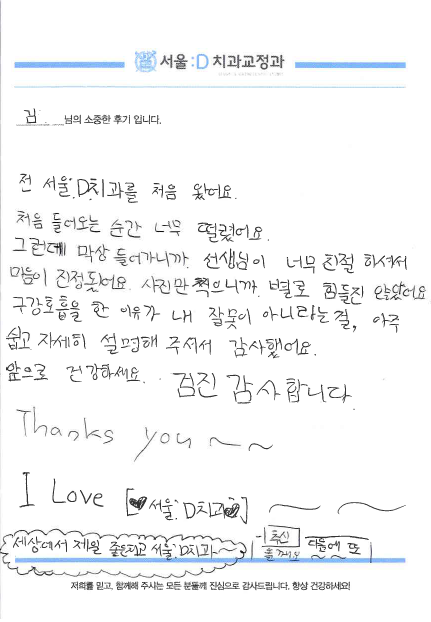 서울:D 치과교정과
김 님의 소중한 후기 입니다.
전 서울:D치과를 처음 왔어요.
처음 들어오는 순간 너무 떨렸어요.
그런데 막상 들어가니까. 선생님이 너무 친절 하셔서
마음이 진정됬어요. 사진만 찍으니까. 별로 힘들진 않았어요
구강호흡을 한 이유가 내 잘못이 아니라는걸, 아주
쉽고 자세히 설명해 주셔서 감사했어요.
앞으로 건강하세요. 검진 감사합니다.
Thanks you ~~
I Love [♥서울:D치과♥] ~ ~
세상에서 제일 좋은치과 서울:D치과~
추신 다음에 또
저희를 믿고, 함께해 주시는 모든 분들께 진심으로 감사드립니다. 항상 건강하세요!